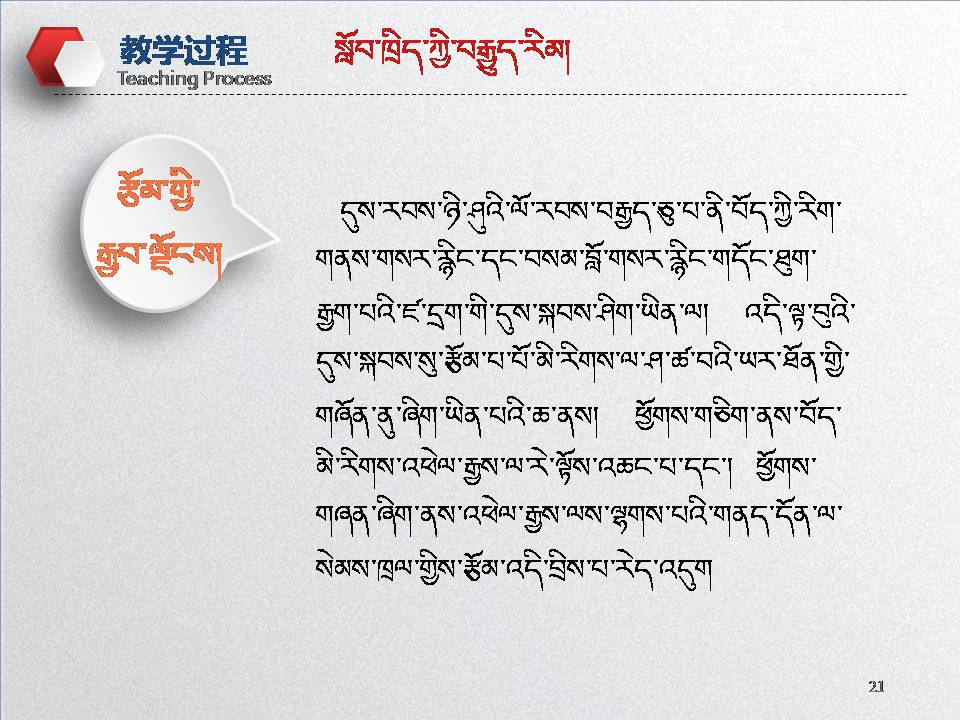 教学过程
Teaching Process
སློབ་ཁྲིད་ཀྱི་བརྒྱུད་རིམ།
རྩོམ་གྱི་
རྒྱབ་ལྗོངས།
དུས་རབས་ཉི་ཤུའི་ལོ་རབས་བརྒྱད་ཅུ་པ་ནི་བོད་ཀྱི་རིག་
གནས་གསར་རྙིང་དང་བསམ་བློ་གསར་རྙིང་གདོང་ཐུག་
རྒྱག་པའི་ཛ་དྲག་གི་དུས་སྐབས་ཤིག་ཡིན་ལ། འདི་ལྟ་བུའི་
དུས་སྐབས་སུ་རྩོམ་པ་པོ་མི་རིགས་ལ་ཤ་ཚ་བའི་ཡར་ཐོན་གྱི་
གཞོན་ནུ་ཞིག་ཡིན་པའི་ཆ་ནས། ཕྱོགས་གཅིག་ནས་བོད་
མི་རིགས་འཕེལ་རྒྱས་ལ་རེ་ལྟོས་འཆང་པ་དང་། ཕྱོགས་
གཞན་ཞིག་ནས་འཕེལ་རྒྱས་ལས་ལྷགས་པའི་གནད་དོན་ལ་
སེམས་ཁྲལ་གྱིས་རྩོམ་འདི་བྲིས་པ་རེད་འདུག
21